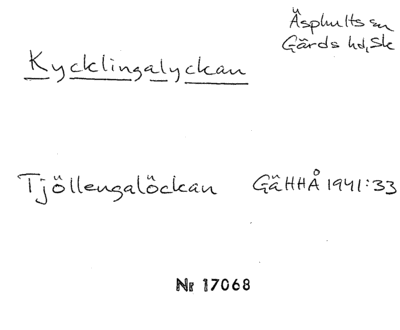 Äsphults sn
Gärds hd, Sk
Kycklingalyckan
Tjöllengalöckan GäHHÅ 1941:33
Nr 17068